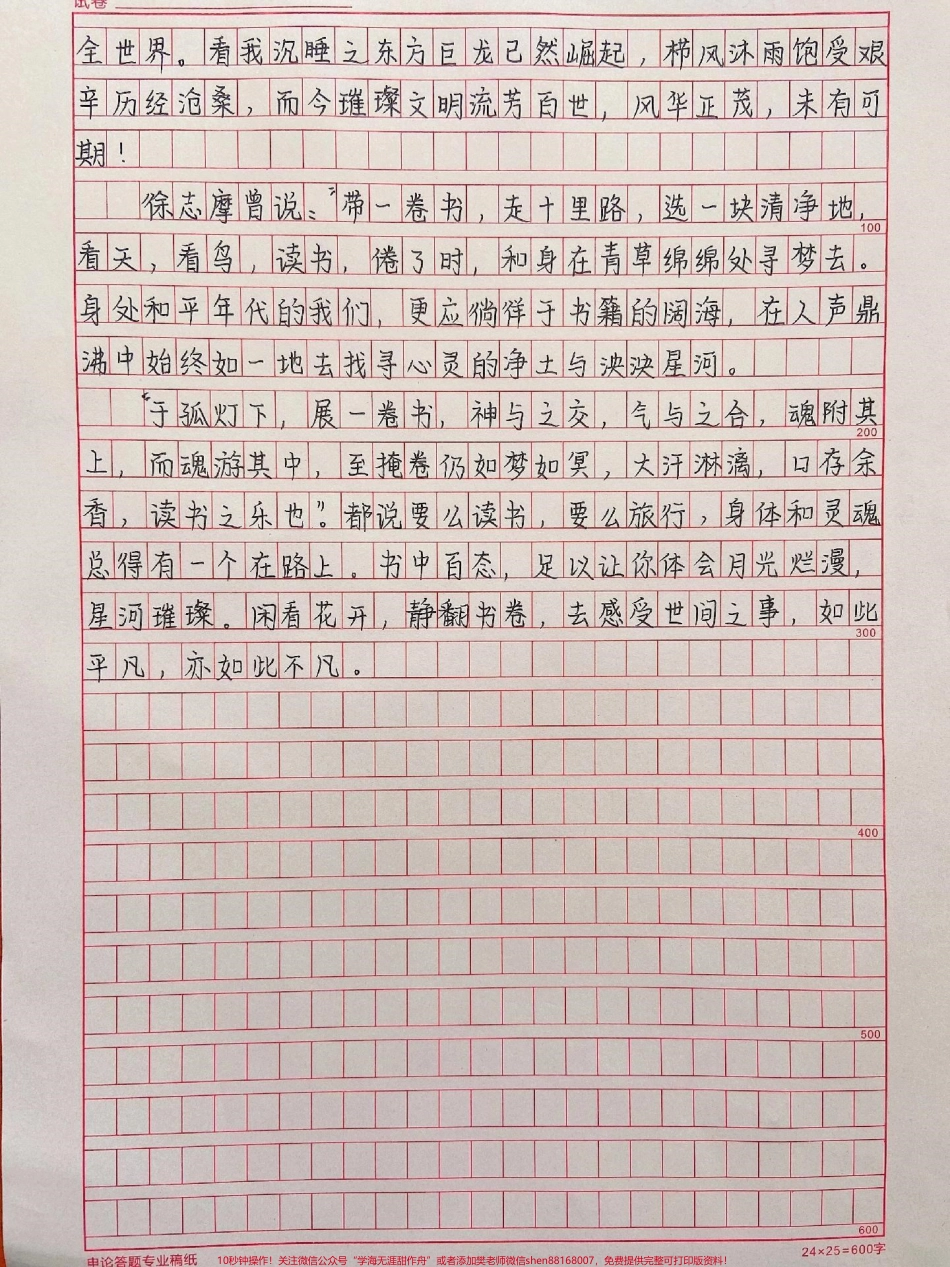 试卷
全世界。看我沉睡之东方巨龙已然崛起，栉风沐雨饱受艰
辛历经沧桑，而今璀璨文明流芳百世，风华正茂，未有可
期！
徐志摩曾说：“带一卷书，走十里路，选一块清净地，
100
看天，看鸟，读书，倦了时，和身在青草绵绵处寻梦去。
身处和平年代的我们，更应徜徉于书籍的阔海，在人声鼎
沸中始终如一地去找寻心灵的净土与泱泱星河。
“于孤灯下，展一卷书，神与之交，气与之合，魂附其
200
上，而魂游其中，至掩卷仍如梦如冥，大汗淋漓，口存余
香，读书之乐也”。都说要么读书，要么旅行，身体和灵魂
总得有一个在路上。书中百态，足以让你体会月光烂漫，
星河璀璨。闲看花开，静翻书卷，去感受世间之事，如此
300
平凡，亦如此不凡。
400
500
600
24×25=600字
申论答题专业稿纸 10秒钟操作！关注微信公众号“学海无涯甜作舟”或者添加樊老师微信shen88168007，免费提供完整可打印版资料！